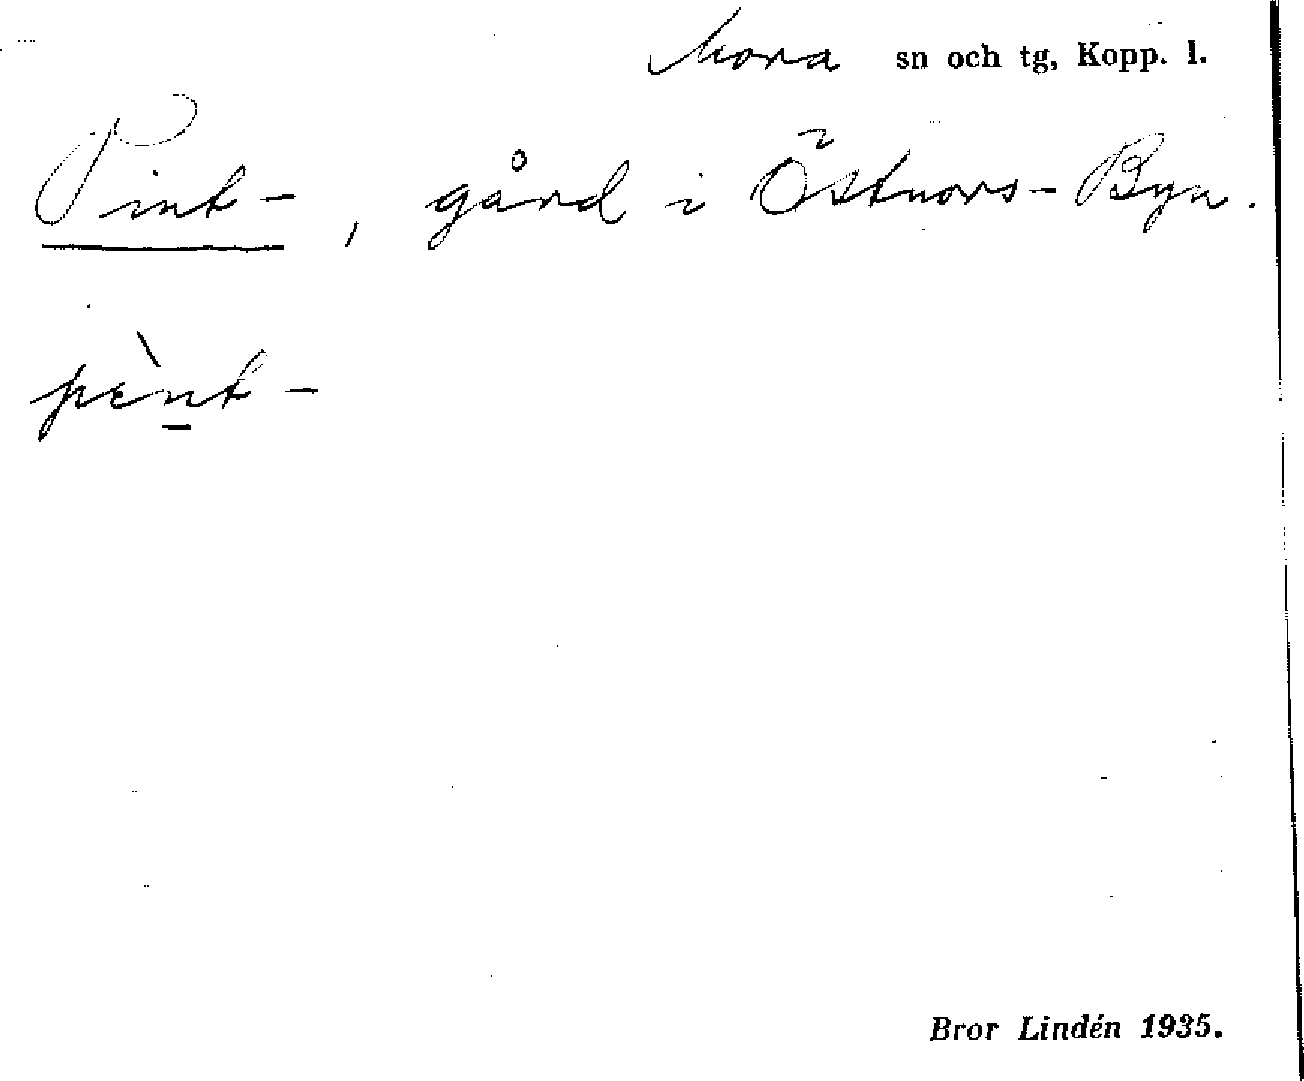 Mora sn och tg, Kopp. l.
Pink-, gård i Östnors-Byn.
pènk-
Bror Lindén 1935.